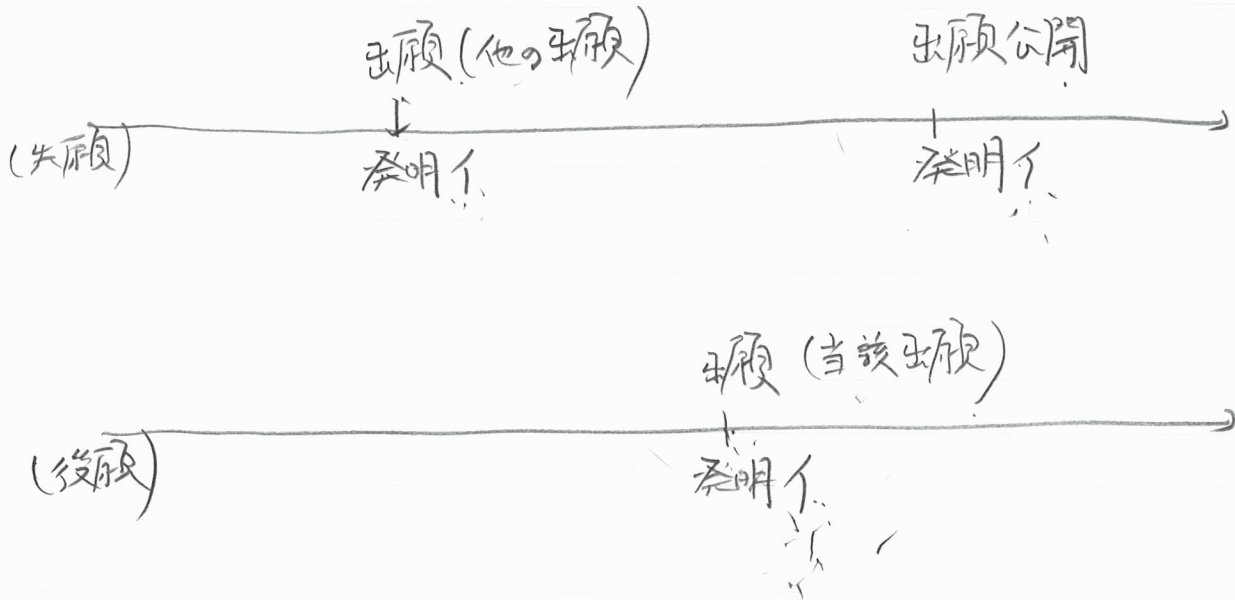 出願(他の出願)
出願公開
(先願)
発明イ
発明イ
出願(当該出願)
(後願)
発明イ